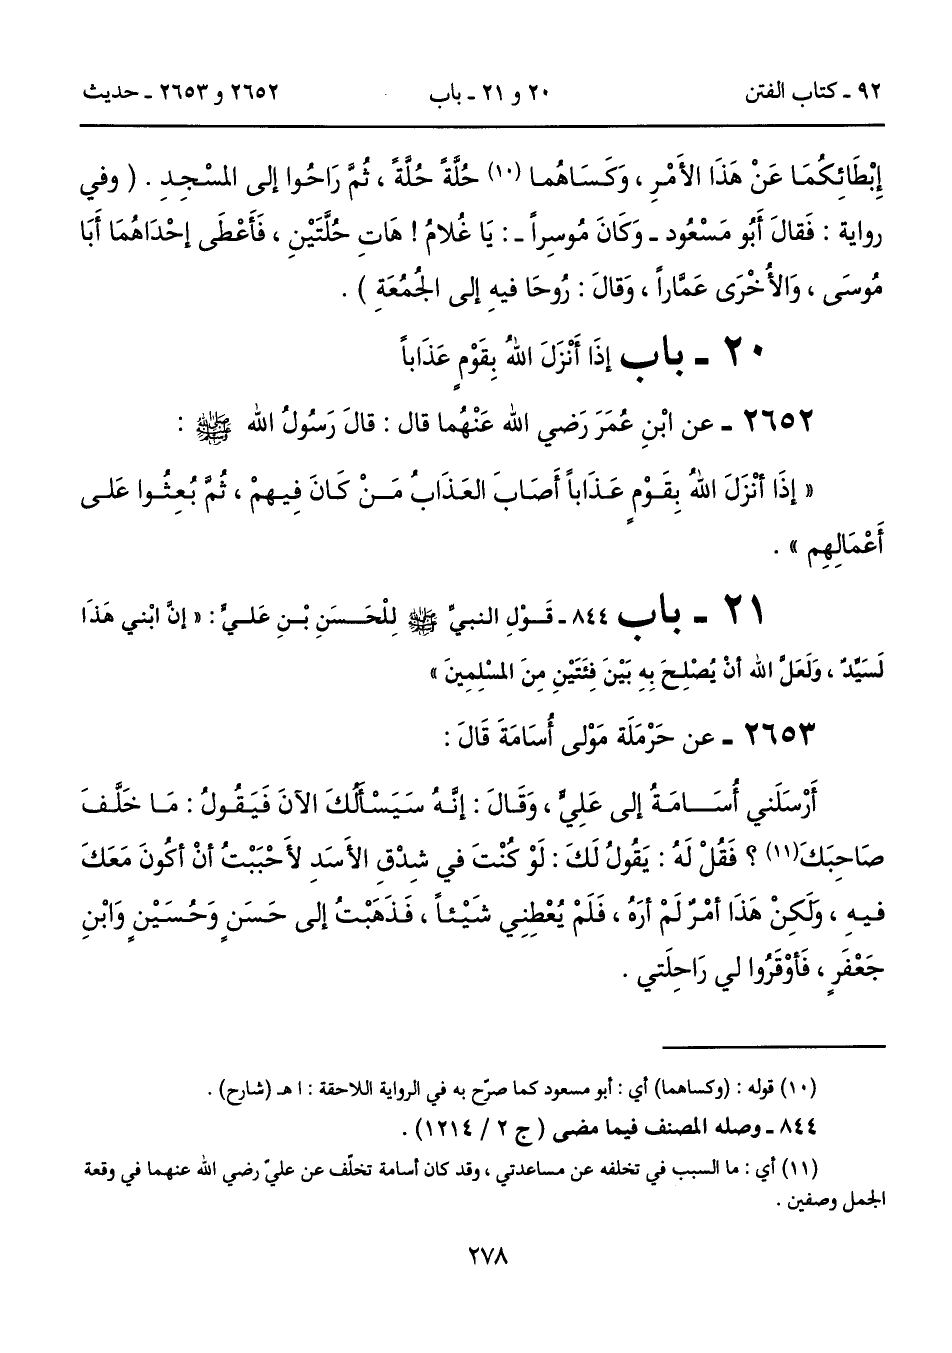 ٩٢ ـ كتاب الفتن ٢٠ و ٢١ ـ باب ٢٦٥٢ و ٢٦٥٣ ـ حديث
إِبْطَائِكُمَا عَنْ هَذَا الأَمْرِ ، وَكَسَاهُما (١٠) حُلَّةً حُلَّةً ، ثُمَّ رَاحُوا إلى المَسْجِدِ . ( وفي
رواية : فَقالَ أَبُو مَسْعُود ـ وَكَانَ مُوسِراً ـ : يَا غُلامُ ! هَاتِ حُلَّتَيْنِ ، فَأَعْطَى إحْدَاهُمَا أَبَا
مُوسَى ، وَالأُخْرَى عَمَّاراً ، وَقالَ : رُوحَا فيهِ إلى الجُمُعَةِ ) .
٢٠ ـ باب إذَا أَنْزَلَ اللهُ بِقَوْمٍ عَذَاباً
٢٦٥٢ ـ عن ابْنِ عُمَرَ رَضي الله عَنْهُما قال : قالَ رَسُولُ الله ﷺ :
« إذَا أنْزَلَ اللهُ بِقَوْمٍ عَذَاباً أَصَابَ العَذَابُ مَنْ كَانَ فِيهِمْ ، ثُمَّ بُعِثُوا عَلى
أَعْمَالِهِم » .
٢١ ـ باب ٨٤٤ ـ قَوْلِ النبيِّ ﷺ لِلْحَسَنِ بْنِ عَليٍّ : « إنَّ ابْني هَذَا
لَسَيِّدٌ ، وَلَعَلَّ الله أنْ يُصْلِحَ بِهِ بَيْنَ فِئَتَيْنِ مِنَ المُسْلِمِينَ »
٢٦٥٣ ـ عن حَرْمَلَة مَوْلى أُسَامَةَ قَالَ :
أَرْسَلَني أُسَامَةُ إلى عَلِيٍّ ، وَقَالَ : إنَّهُ سَيَسْأَلُكَ الآنَ فَيَقُولُ : مَا خَلَّفَ
صَاحِبَكَ(١١) ؟ فَقُلْ لَهُ : يَقُولُ لَكَ : لَوْ كُنْتَ في شِدْقِ الأسَدِ لأَحْبَبْتُ أنْ أكُونَ مَعَكَ
فيهِ ، ولَكِنْ هَذَا أمْرٌ لَمْ أرَهُ ، فَلَمْ يُعْطِني شَيْئاً ، فَذَهَبْتُ إلى حَسَنٍ وَحُسَيْنٍ وَابْنِ
جَعْفَرٍ ، فَأَوْقَرُوا لي رَاحِلَتي .
(١٠) قوله : (وكساهما) أي : أبو مسعود كما صرّح به في الرواية اللاحقة : ا هـ (شارح) .
٨٤٤ ـ وصله المصنف فيما مضى ( ج ٢ / ١٢١٤) .
(١١) أي : ما السبب في تخلفه عن مساعدتي ، وقد كان أسامة تخلّف عن عليّ رضي الله عنهما في وقعة
الجمل وصفين .
٢٧٨